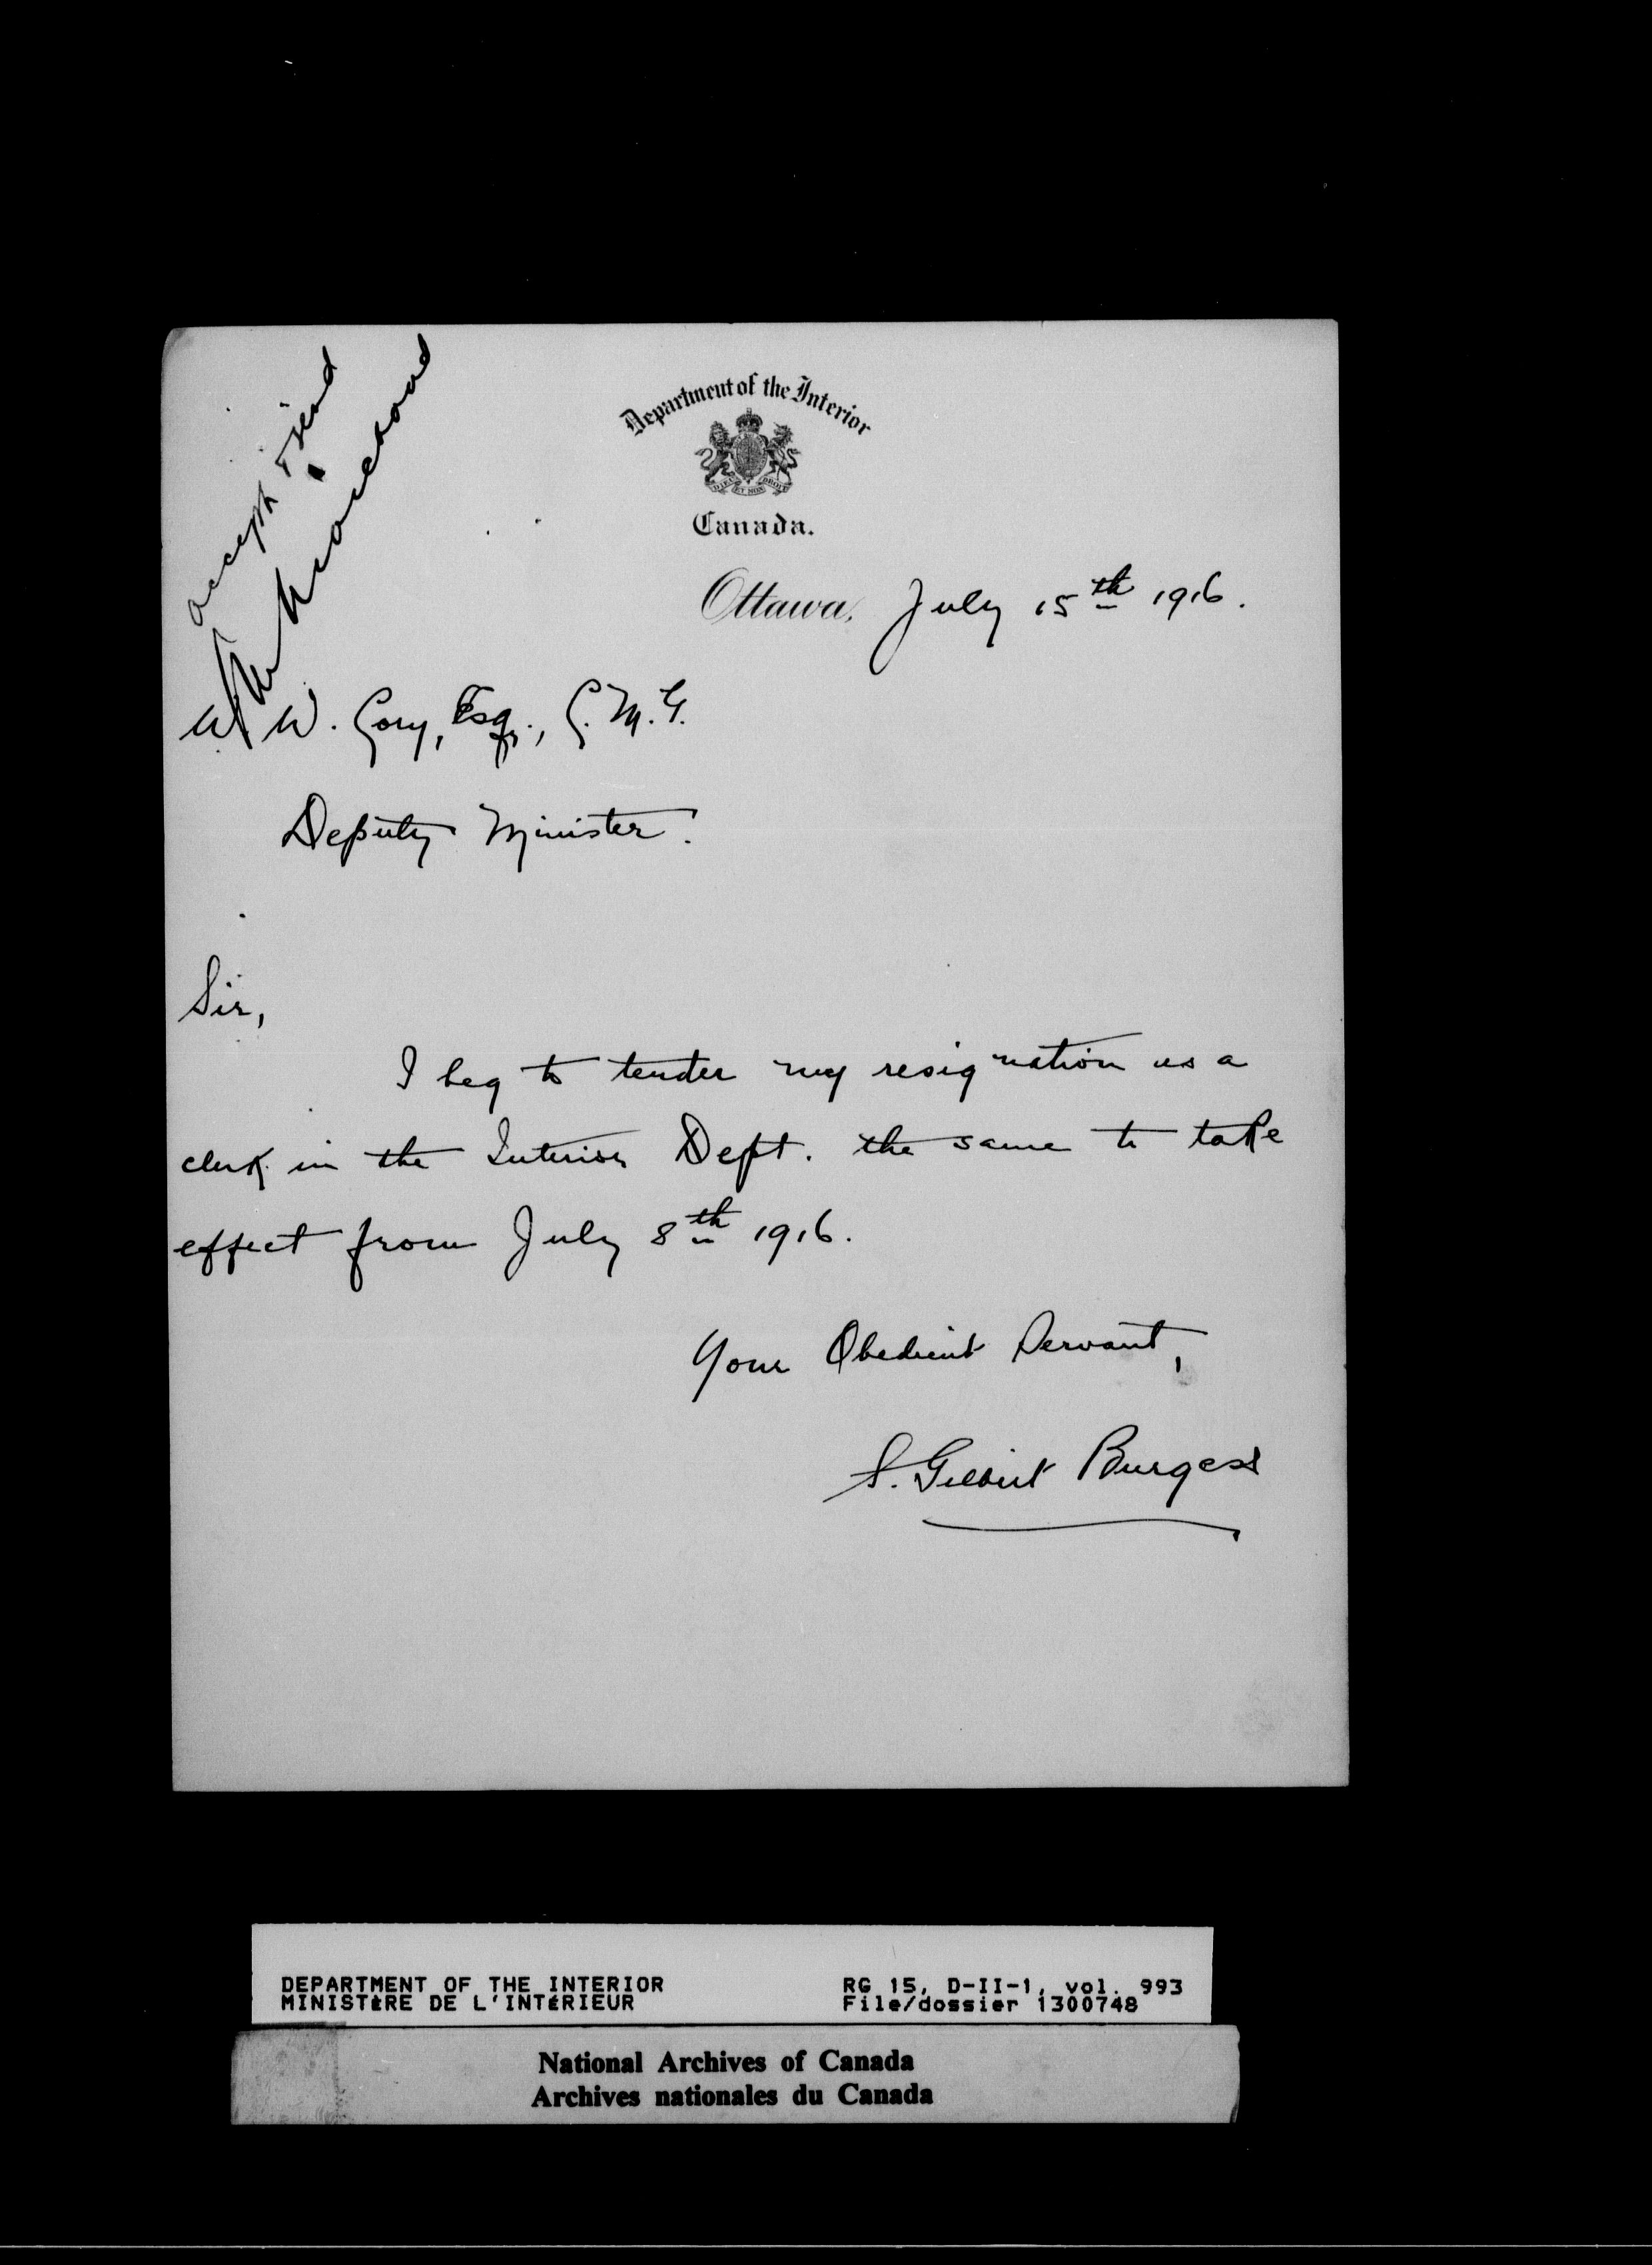 accept & send
Department of the Interior
DIEU ET MON DROIT
Canada.
Ottawa, July 15th 1916.
W. W. Cory, Esq., C. M. G.
Deputy Minister.
Sir,
I beg to tender my resignation as a
clerk in the Interior Dept. the same to take
effect from July 8th 1916.
Your Obedient Servant,
S. Gilbert Burgess
DEPARTMENT OF THE INTERIOR RG 15, D-II-1, vol. 993
MINISTÈRE DE L'INTÉRIEUR File/dossier 1300748
National Archives of Canada
Archives nationales du Canada